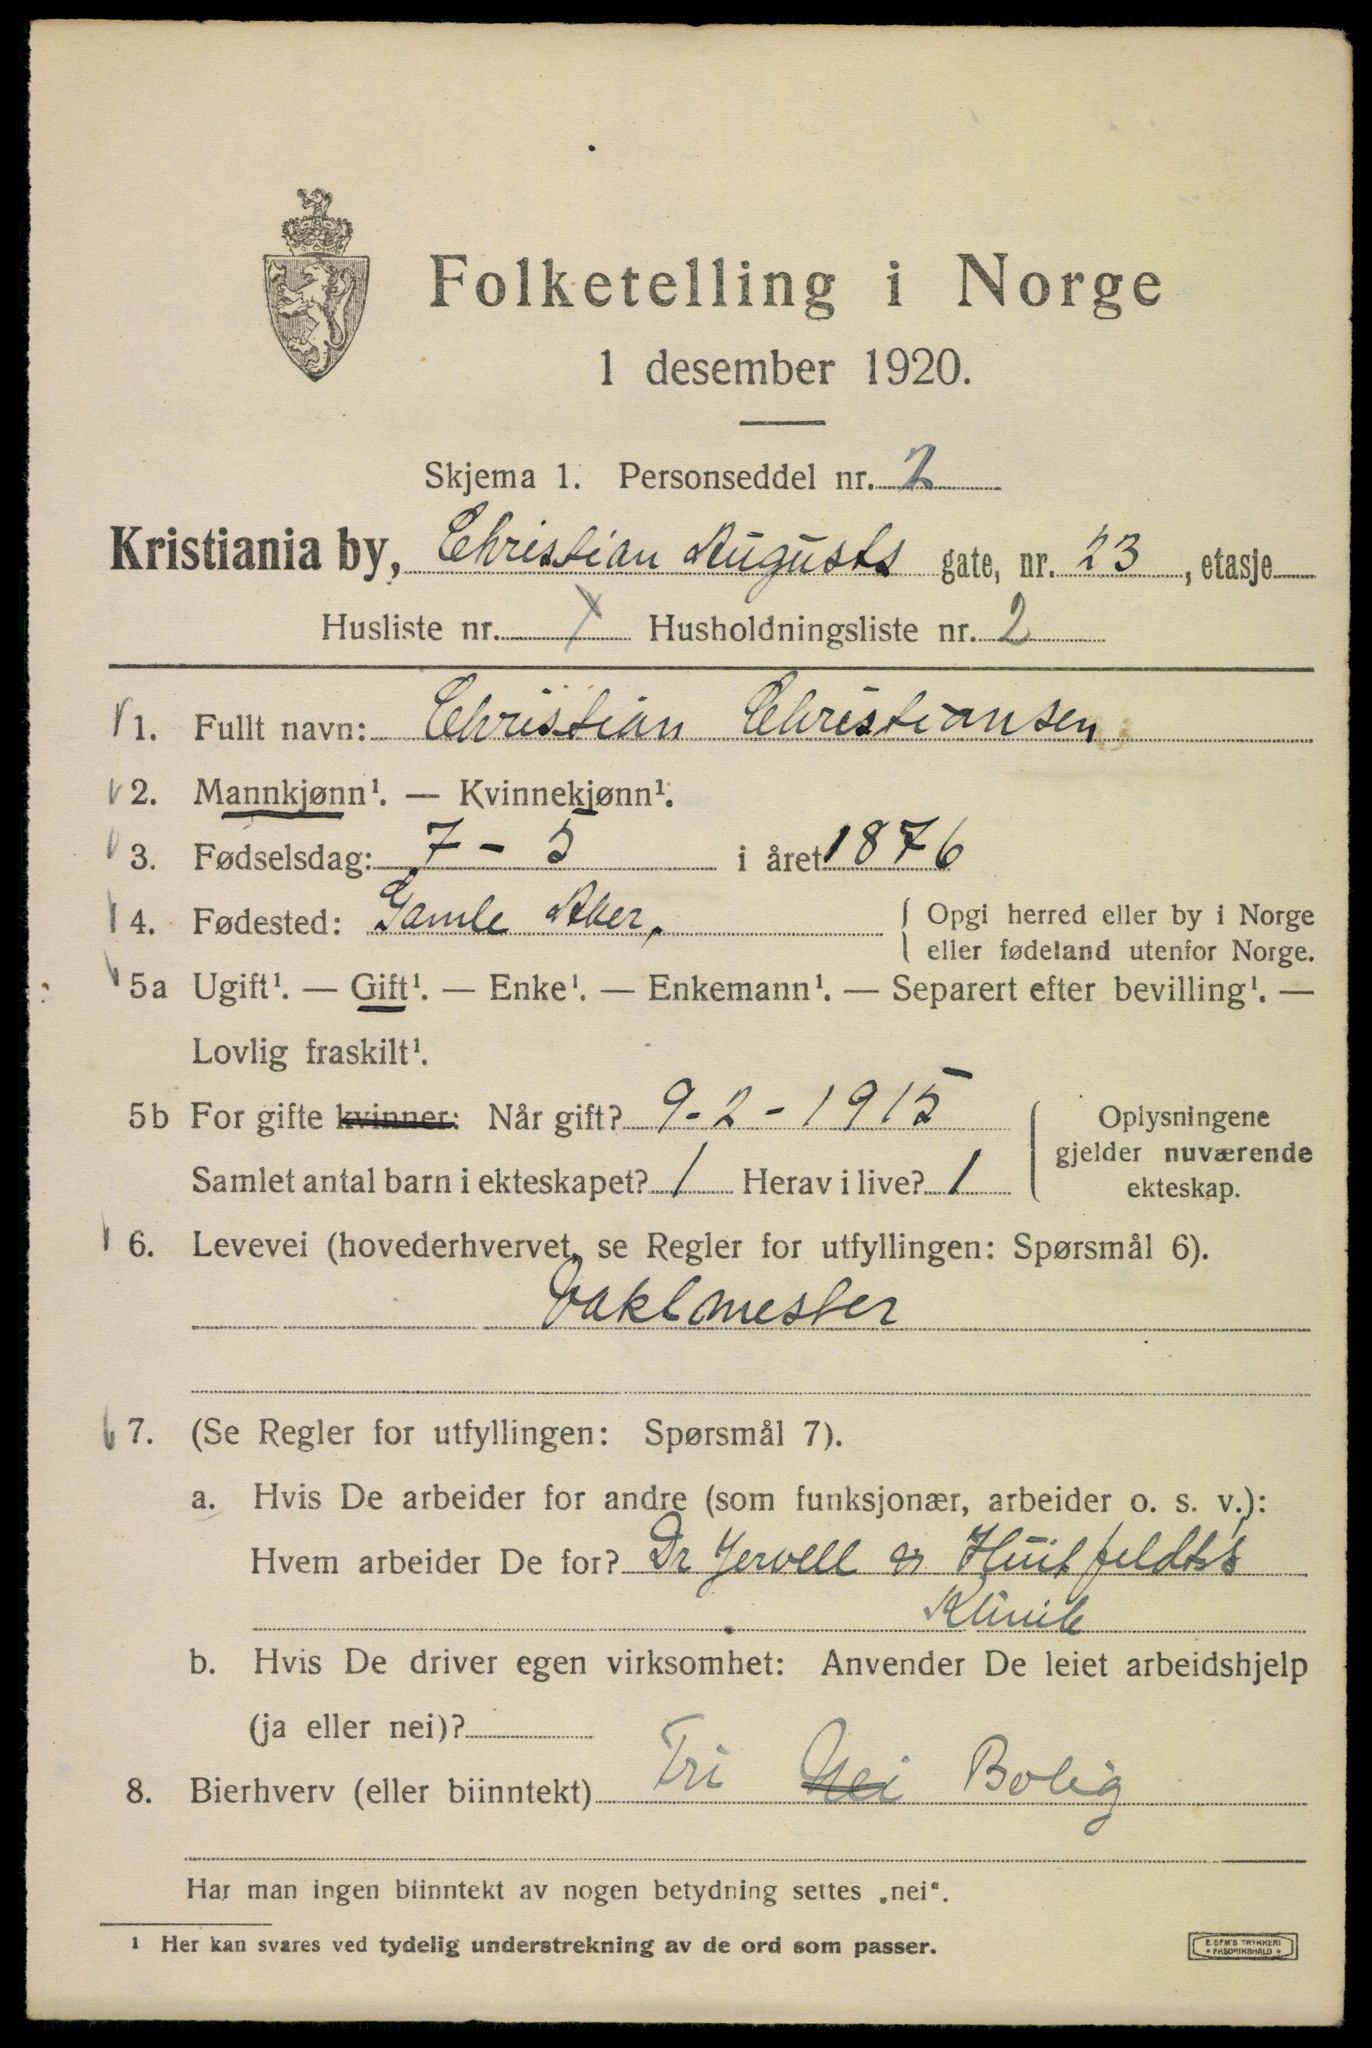 Folketelling i Norge
1 desember 1920.
Skjema 1. Personseddel nr. 2
Kristiania by, Christian Augusts gate, nr. 23, etasje
Husliste nr. Husholdningsliste nr. 2
1. Fullt navn: Christian Christiansen
2. Mannkjønn¹. — Kvinnekjønn¹.
3. Fødselsdag: 7 - 5 i året 1876
4. Fødested: Gamle Aker, { Opgi herred eller by i Norge
eller fødeland utenfor Norge.
5a Ugift¹. — Gift¹. — Enke¹. — Enkemann¹. — Separert efter bevilling¹. —
Lovlig fraskilt¹.
5b For gifte kvinner: Når gift? 9-2-1915
Samlet antal barn i ekteskapet? 1 Herav i live? 1
Oplysningene
gjelder nuværende
ekteskap.
6. Levevei (hovederhvervet, se Regler for utfyllingen: Spørsmål 6).
Vaktmester
7. (Se Regler for utfyllingen: Spørsmål 7).
a. Hvis De arbeider for andre (som funksjonær, arbeider o. s. v.):
Hvem arbeider De for? Dr Jervell og Huitfeldts's
Klinik
b. Hvis De driver egen virksomhet: Anvender De leiet arbeidshjelp
(ja eller nei)?
8. Bierhverv (eller biinntekt) Fri Nei Bolig
Har man ingen biinntekt av nogen betydning settes „nei“.
¹ Her kan svares ved tydelig understrekning av de ord som passer.
E. SEM'S TRYKKERI
* FREDRIKSHALD *